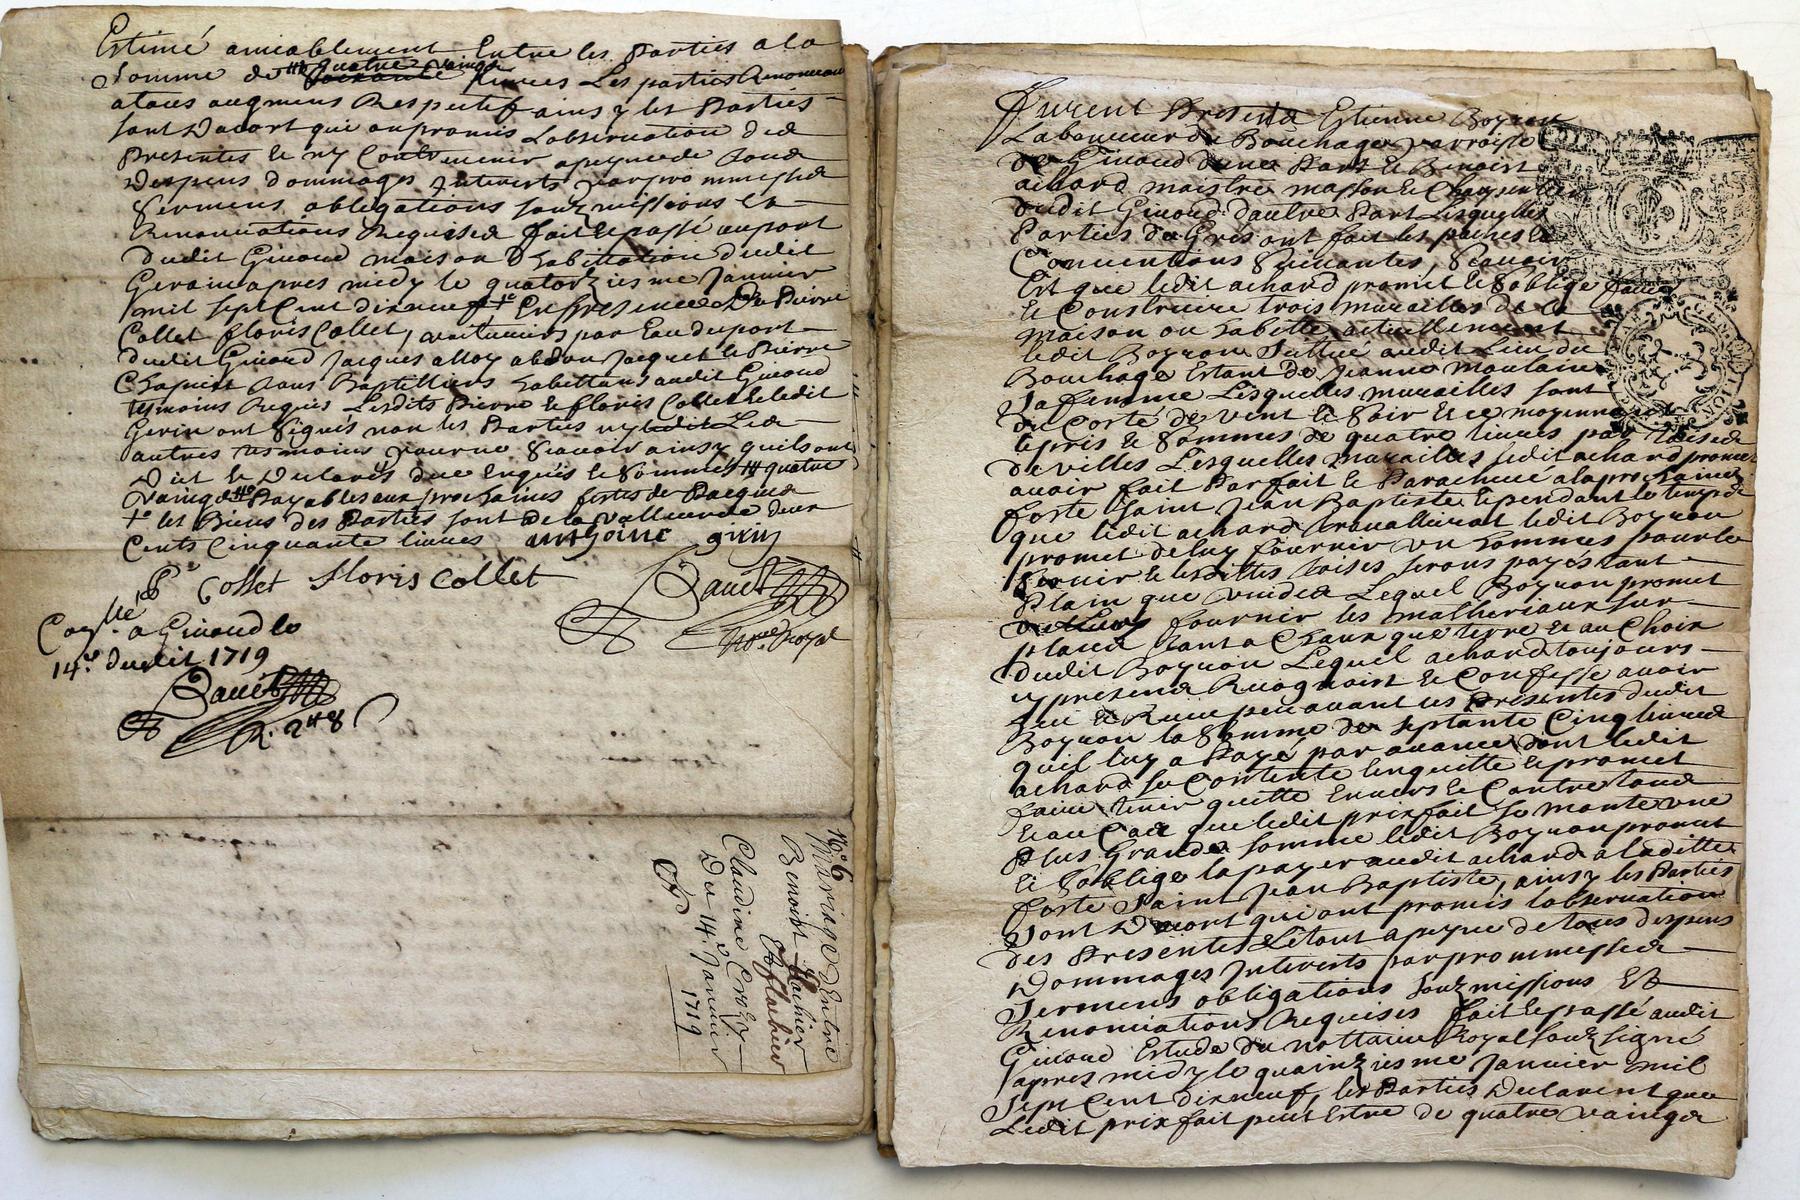 Estimé amiablement Entre les Parties a la
Somme de quatre vaings livres Les parties Renonceau
a tous augmens Respectif ainsy les Parties
sont Dacort qui onpromis Lobservation des
Presentes et ny Contrevenir apeyne de tous
Despens dommages Interets par pro mmesses
Sermens obligations souzmissions et
Renonciations Requises fait et passé au port
dudit Giuoud maison D'habitation dudit
Gerain apres midy le quatorziesme Janvier
mil sept Cent dixneuf En presence de Sr Pierre
Collet floris Collet, voituriers par Eau du port
dudit Giuoud Jacques alloy abdon Jacquet et Pierre
Chapuis tous habittans audit Giuoud
temoins Requis Lesdits Pierre et floris Collet et ledit
Gerin ont Signés non les Parties ny Les
autres tesmoins pour ne Scavoir ainsy quils ont
Dict et Declarés due Enquis et Sommes quatre
vaings Payables aux prochaines festes de Pacques
les Biens des Parties sont de la valleur de deux
Cents Cinquante livres antoine girin
P Collet floris Collet
Not. Royal
a Giuoud le
14e dudit 1719
R. 2tt 8
No 6
Marriage Entre
Benoist flachier
flachier
Claudine Crozy
Du 14. Janvier
1719
furent Presents Estienne Boyron
Laboureur du Bouchage parroisse
de Giuoud dune Part et Benoist
achard maistre masson et Charpentier
dudit Giuoud dautre Part Lesquelles
Parties de Gres ont fait les paches et
Conventions Suivantes, Scavoir
Est que ledit achard promet et Soblige faire
et Construire trois murailles de la
maison ou habitte actuellement
ledit Boyron Sittué audit Lieu du
Bouchage Estant de Jeanne moulain
Sa femme Lesquelles murailles sont
du Corté de vent et Soir Et ce moyennant
le pris et Sommes de quatre livres par toise de
de villes Lesquelles murailles ledit achard promet
avoir fait Parfait et Parachevé a la prochaine
feste Saint Jean Baptiste et pendant le temps
que ledit achard travalliera ledit Boyron
promet de luy fournir un hommes pour le
Servir et lesdittes toises serons payés tant
Plain que vuides Lequel Boyron promet
fournir les matheriaux sur
place tant a Chaux que terre Et au Choix
dudit Boyron Lequel achard toujours
y present Recognoist et Confesse avoir
heu et Receu peu avant les Presentes dudit
Boyron la Somme de septante Cinq livres
quil luy a Payé par avance dont ledit
achard se Contente lenquitte et promet
faire tenir quitte Envers et Contre tous
Et au Cas que ledit prixfait se monte une
Plus Grande somme ledit Boyron promet
Et Soblige la payer audit achard a la ditte
feste Saint Jean Baptiste, ainsy les Parties
sont Dacort qui ont promis lobservation
des Presentes Letout a peyne de tous despens
Dommages Interets par prommesses
Sermens obligations souzmissions Et
Renonciations Requises fait et passé audit
Giuoud Estude du nottaire Royal souzsigné
apres midy le quainziesme Janvier mil
Sept Cent dixneuf, les Parties Declarent que
Ledit prix fait peut Estre de quatre vaings